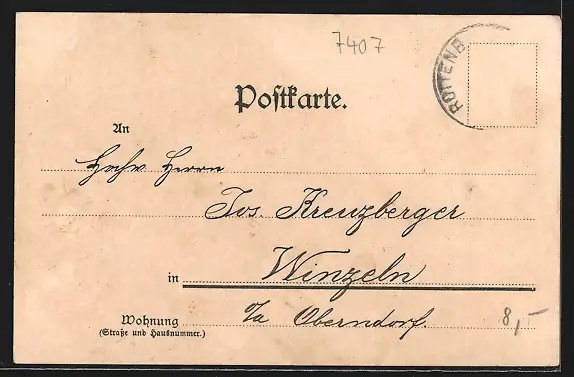 7407
ROTTENB
Postkarte.
An
Hochw Herrn
Jos. Kreuzberger
in Winzeln
O/a Oberndorf.
Wohnung
(Straße und Hausnummer.)
8,-